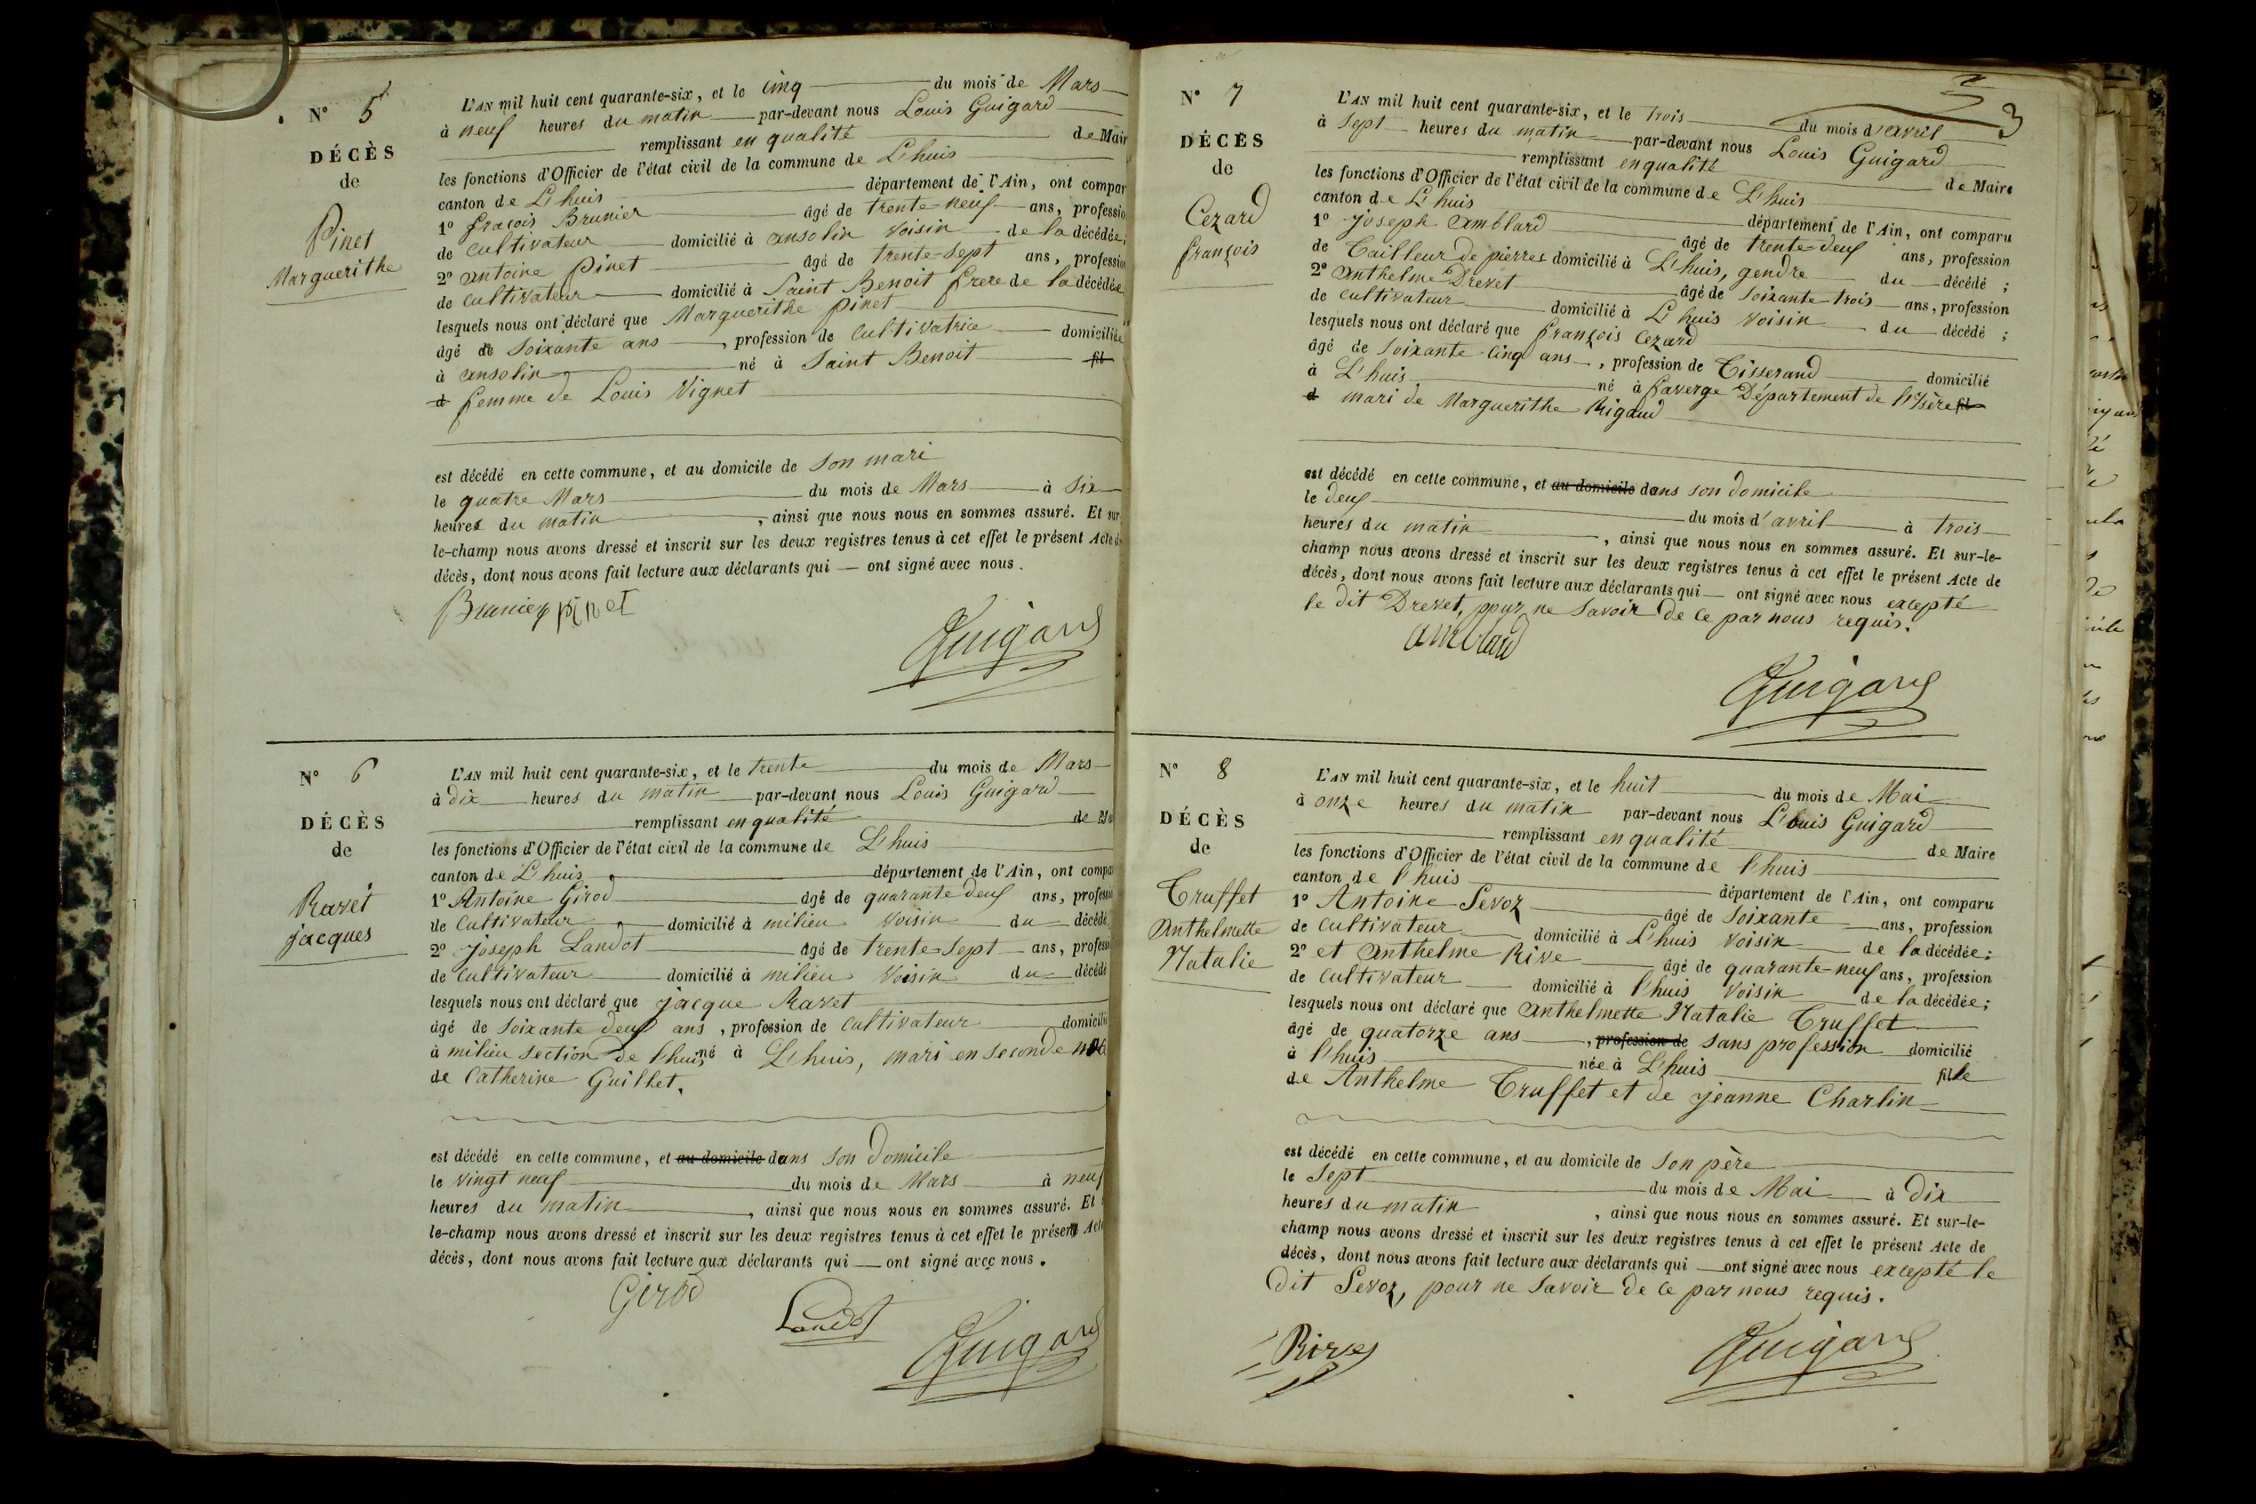 N° 5
DÉCÈS
de
Pinet
Marguerithe
L'AN mil huit cent quarante-six, et le cinq du mois de Mars
à neuf heures du matin par-devant nous Louis Guigard
remplissant en qualité de Mair
les fonctions d'Officier de l'état civil de la commune de L'huis
canton de L'huis département de l'Ain, ont compar
1° fraçois Brunier âgé de trente-neuf ans, professio
de cultivateur domicilié à ansolin voisin de la décédée;
2° antoine Pinet âgé de trente-sept ans, profession
de cultivateur domicilié à Saint Benoit frere de la décédée
lesquels nous ont déclaré que Marguerithe Pinet
âgé de Soixante ans, profession de cultivatrice domiciliée
à ansolin né à Saint Benoit fil
d femme de Louis Vignet
est décédé en cette commune, et au domicile de son mari
le quatre Mars du mois de Mars à Six
heures du matin, ainsi que nous nous en sommes assuré. Et sur-
le-champ nous avons dressé et inscrit sur les deux registres tenus à cet effet le présent Acte de
décès, dont nous avons fait lecture aux déclarants qui — ont signé avec nous.
Brunier pinet
Guigard
N° 6
DÉCÈS
de
Ravet
jacques
L'AN mil huit cent quarante-six, et le trente du mois de Mars
à dix heures du matin par-devant nous Louis Guigard
remplissant en qualité de Ma
les fonctions d'Officier de l'état civil de la commune de L'huis
canton de L'huis département de l'Ain, ont compa
1° Antoine Girod âgé de quarante deuf ans, professi
de cultivateur, domicilié à milieu voisin du décédé
2° joseph Landot âgé de trente-sept ans, professi
de cultivateur domicilié à milieu voisin du décédé
lesquels nous ont déclaré que jacque Ravet
âgé de soixante deuf ans, profession de cultivateur domicilié
à milieu section de l'huis né à L'huis, mari en seconde
de Catherine Guillet.
est décédé en cette commune, et au domicile dans son domicile
le vingt neuf du mois de Mars à neuf
heures du matin, ainsi que nous nous en sommes assuré. Et
le-champ nous avons dressé et inscrit sur les deux registres tenus à cet effet le présent Acte
décès, dont nous avons fait lecture aux déclarants qui — ont signé avec nous.
Girod
Landot
Guigard
3
N° 7
DÉCÈS
de
Cezard
françois
L'AN mil huit cent quarante-six, et le trois du mois d'avril
à Sept heures du matin par-devant nous Louis Guigard
remplissant en qualité de Maire
les fonctions d'Officier de l'état civil de la commune de L'huis
canton de L'huis département de l'Ain, ont comparu
1° joseph amblard âgé de trente-deuf ans, profession
de Tailleur de pierres domicilié à L'huis, gendre du décédé;
2° anthelme Drevet âgé de soixante trois ans, profession
de cultivateur domicilié à L'huis voisin du décédé;
lesquels nous ont déclaré que françois Cezard
âgé de soixante-cinq ans, profession de Tisserand domicilié
à L'huis né à faverge Département de l'Isère fil
d mari de Marguerithe Rigaud
est décédé en cette commune, et au domicile dans son domicile
le deuf du mois d'avril à trois
heures du matin, ainsi que nous nous en sommes assuré. Et sur-le-
champ nous avons dressé et inscrit sur les deux registres tenus à cet effet le présent Acte de
décès, dont nous avons fait lecture aux déclarants qui — ont signé avec nous excepté
le dit Drevet, pour ne savoir de ce par nous requis.
amblard
Guigard
N° 8
DÉCÈS
de
Truffet
Anthelmette
Natalie
L'AN mil huit cent quarante-six, et le huit du mois de Mai
à onze heures du matin par-devant nous Louis Guigard
remplissant en qualité de Maire
les fonctions d'Officier de l'état civil de la commune de l'huis
canton de l'huis département de l'Ain, ont comparu
1° Antoine Sevoz âgé de Soixante ans, profession
de cultivateur domicilié à L'huis voisin de la décédée;
2° et Anthelme Rive âgé de quarante-neuf ans, profession
de cultivateur domicilié à l'huis voisin de la décédée;
lesquels nous ont déclaré que Anthelmette Natalie Truffet
âgé de quatorze ans, profession de sans profession domicilié
à l'huis née à L'huis fille
de Anthelme Truffet et de jeanne Charlin
est décédé en cette commune, et au domicile de son père
le Sept du mois de Mai à dix
heures du matin, ainsi que nous nous en sommes assuré. Et sur-le-
champ nous avons dressé et inscrit sur les deux registres tenus à cet effet le présent Acte de
décès, dont nous avons fait lecture aux déclarants qui — ont signé avec nous excepté le
dit Sevoz, pour ne savoir de ce par nous requis.
Rive
Guigard